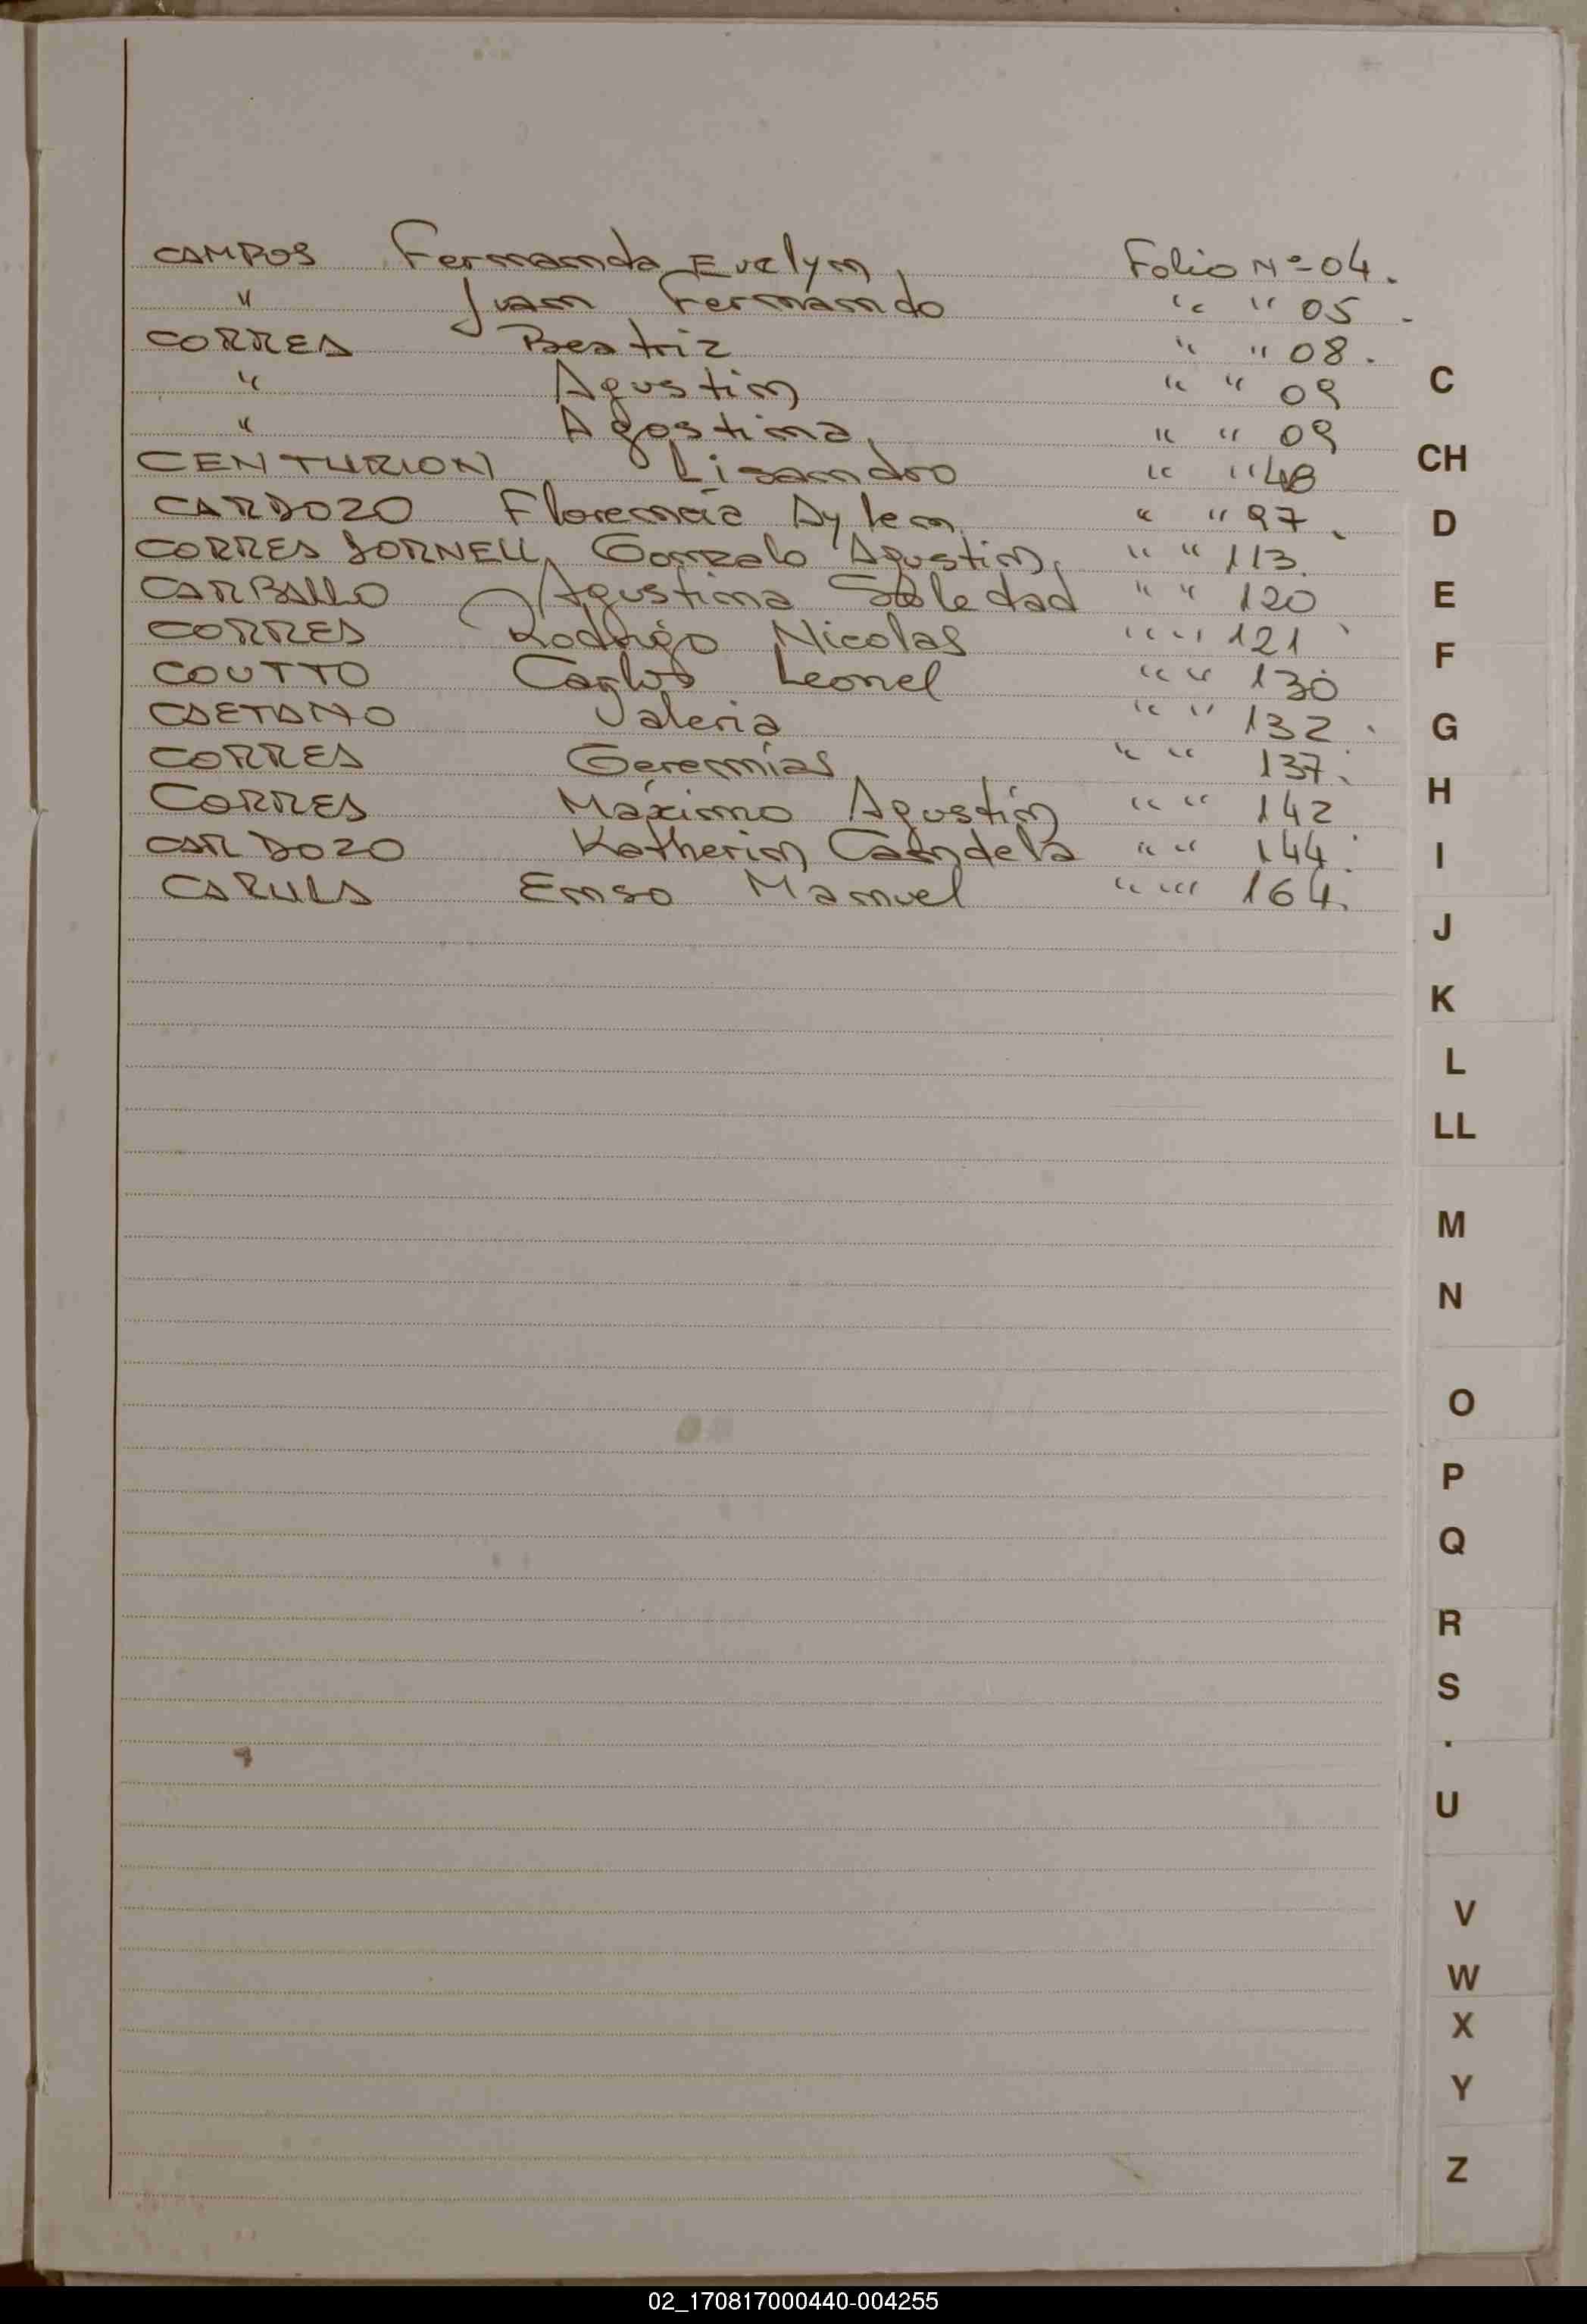 CAMPOS Fernanda Evelyn, Folio Nº 04.
" Juan Fernando " " 05.
CORREA Beatriz " " 08.
" Agustin " " 09
" Agostina, " " 09
CENTURION Lisandro " " 48
CARDOZO Florencia Aylen " " 97.
CORREA Gonzalo Agustin, " " 113.
CARBALLO Agustina Soledad " " 120
CORREA Rodrigo Nicolas " " 121
COUTTO Carlos Leonel " " 130
CAETANO Valeria " " 132.
CORREA Geremías " " 137.
CORREA Máximo Agustín " " 142
CARDOZO Katherin Candela " " 144.
CARULA Enzo Manuel " " 164.
C
CH
D
E
F
G
H
I
J
K
L
LL
M
N
O
P
Q
R
S
U
V
W
X
Y
Z
02_170817000440-004255